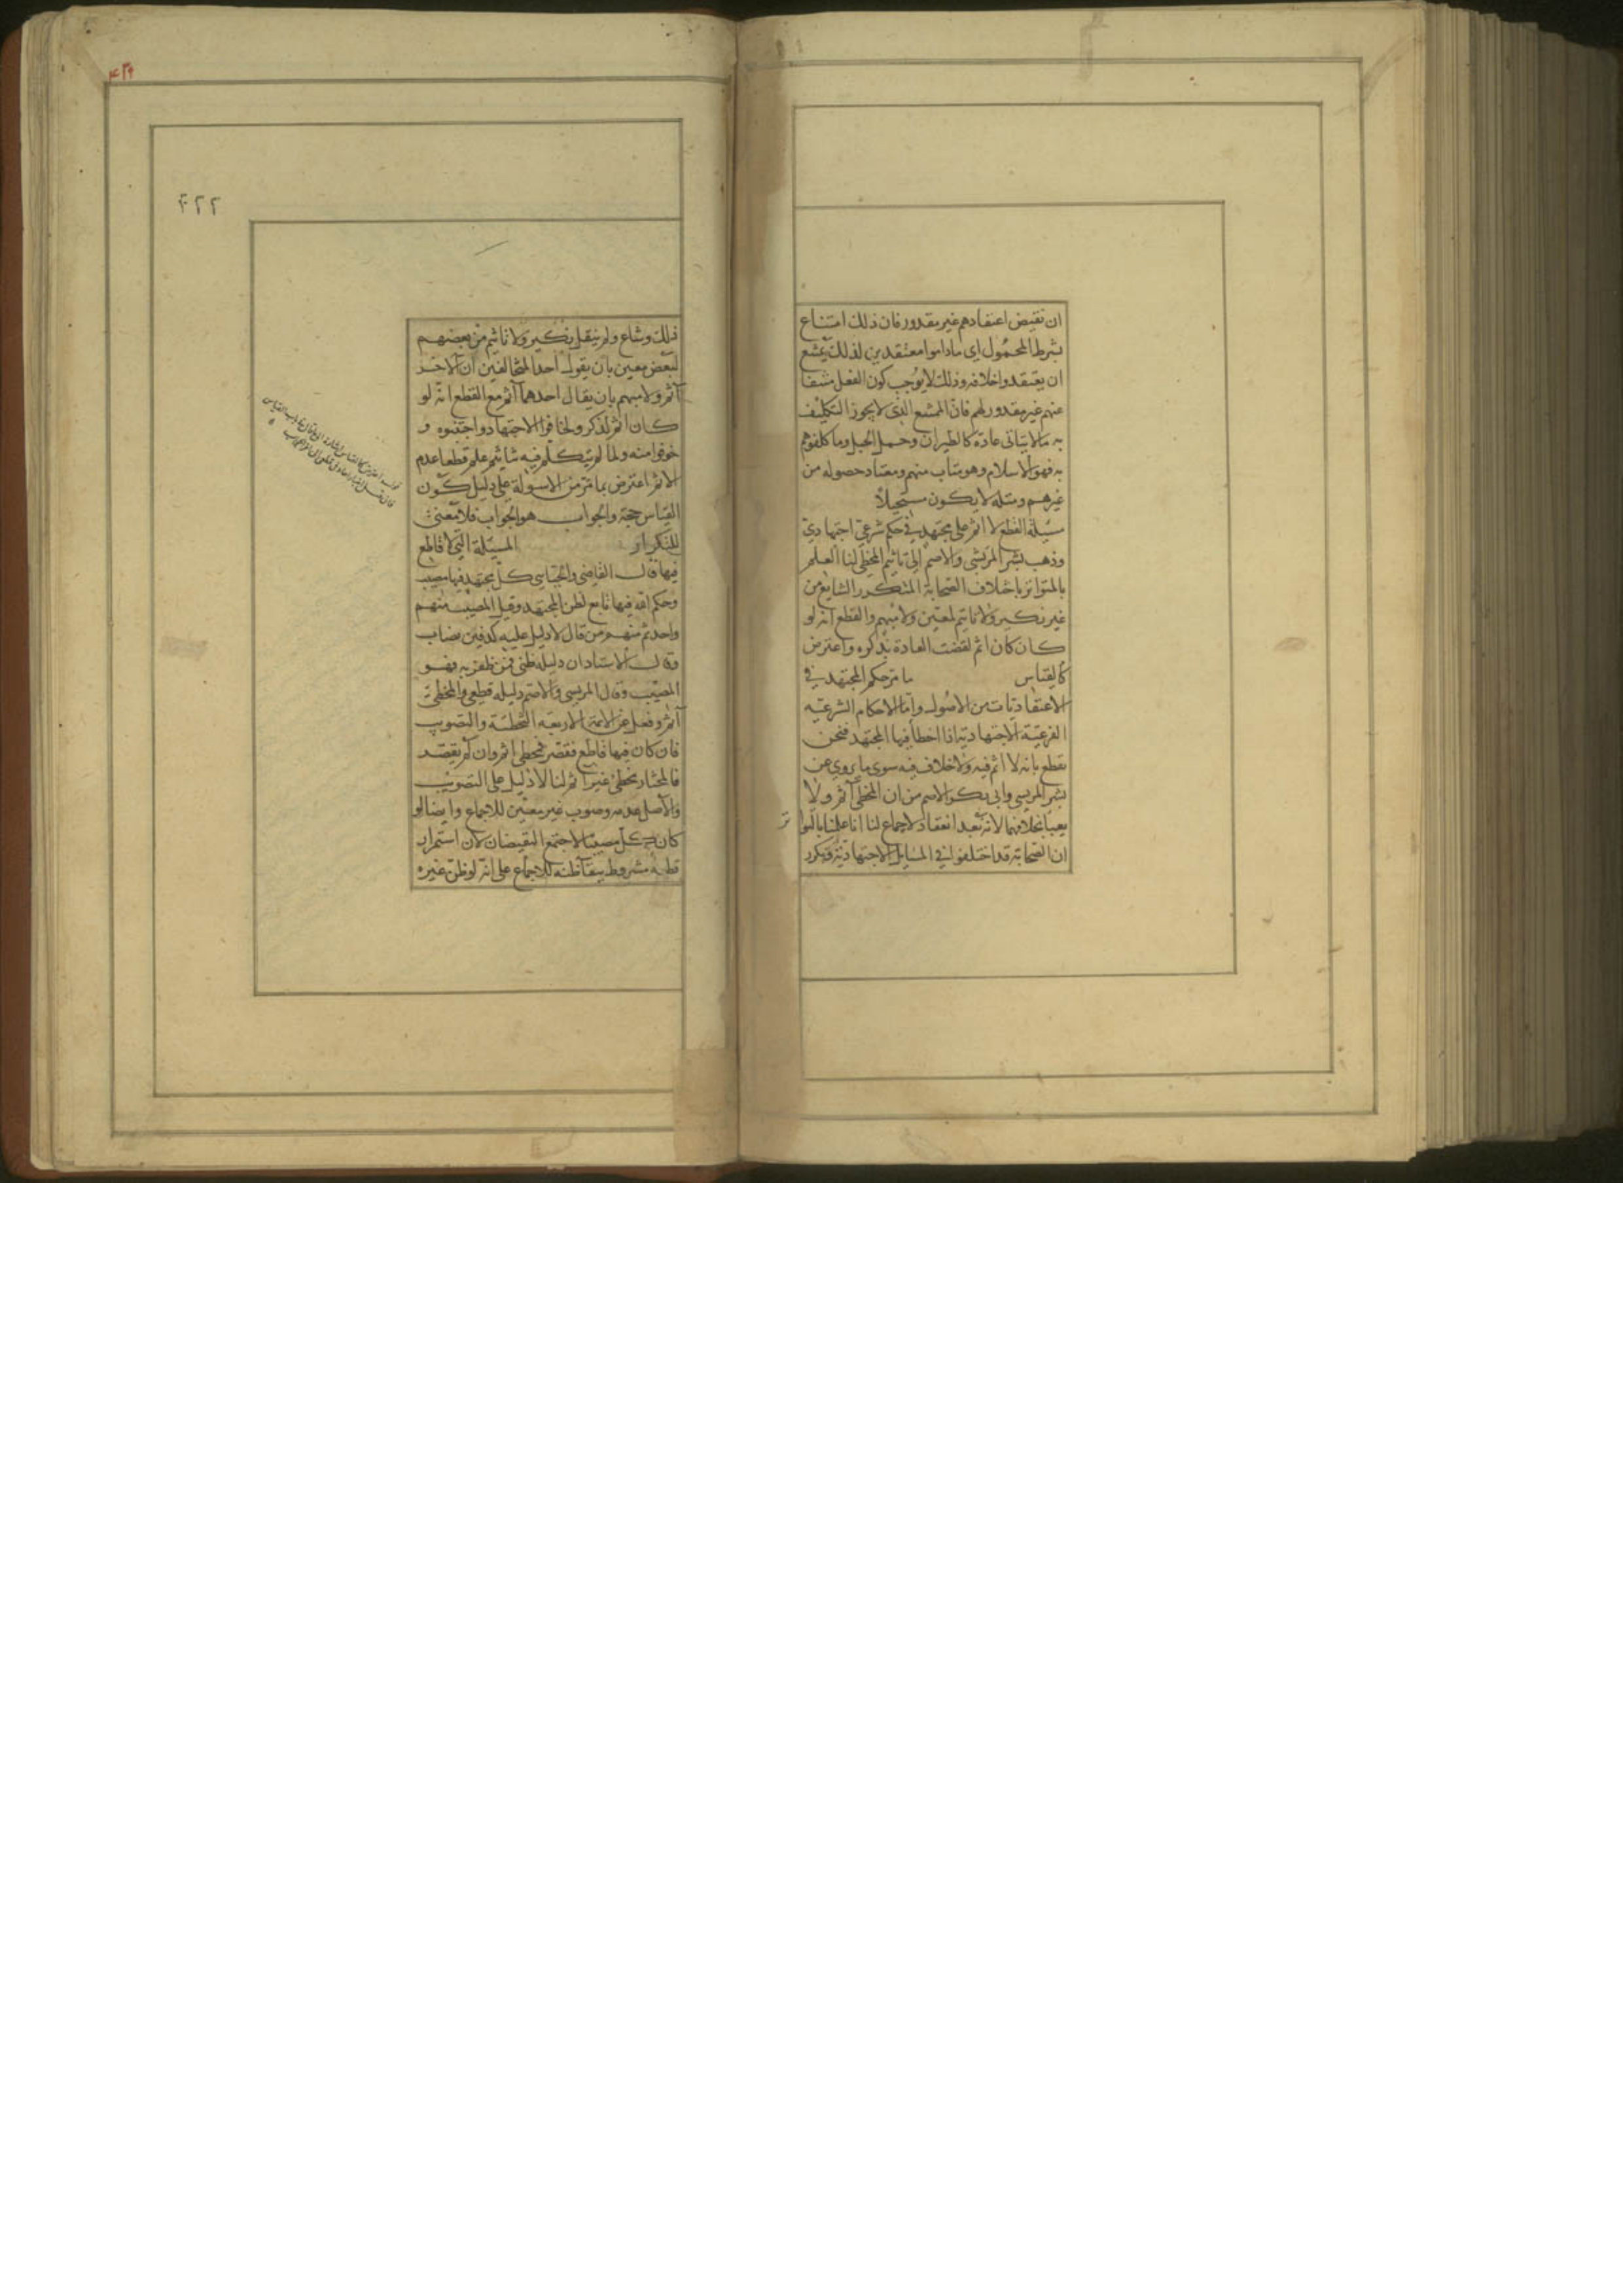 ان نقيض اعتقادهم غير مقدور فان ذلك امتناع
بشرط المحمول اى ماداموا معتقدين لذلك يمتنع
ان يعتقدوا خلافه وذلك لا يوجب كون الفعل ممتنعا
عنهم غير مقدور لهم فان الممتنع الذى لا يجوز التكليف
به مالا يتاتى عادة كالطيران وحمل الجبل وما كلفوهم
به فهو الاسلام وهو متاب منهم ومعتاد حصوله من
غيرهم ومثله لا يكون مستحيلا
مسئلة القطع لا اثم على مجتهد في حكم شرعي اجتهادي
وذهب بشر المريسى والاصم الى تاثيم المخطى لنا العلم
بالتواتر باختلاف الصحابة المتكرر الشايع من
غير نكير ولا تاثيم لمعين ولا مبهم والقطع انه لو
كان كان اثم لقضت العادة بذكره واعترض
كالقياس ما مر حكم المجتهد في
الاعتقاديات من الاصول واما الاحكام الشرعيه
الفرعية الاجتهادية اذا اخطا فيها المجتهد فنحن
نقطع بانه لا اثم فيه ولا خلاف فيه سوى ما يروى عن
بشر المريسى وابى بكر الاصم من ان المخطى آثم ولا
يعبا بخلافهما لانه بعد انعقاد الاجماع لنا انا علمنا بالتواتر
ان الصحابة قد اختلفوا في المسايل الاجتهادية وتكرر
۴۲۲
ذلك وشاع ولم ينقل نكير ولا تاثيم من بعضهم
لبعض معين بان يقول احد المخالفين ان الاخر
آثم ولا مبهم بان يقال احدهما آثم مع القطع انه لو
كان اثم لذكر ولخافوا الاجتهاد واجتنبوه و
خوفوا منه ولما لم يتكلم فيه بتاثيم علم قطعا عدم
الاثم اعترض بما مر من الاسولة على دليل كون
القياس حجة والجواب هو الجواب فلا معنى
للتكرار المسئلة التى لا قاطع
فيها قال القاضى والجبائى كل مجتهد فيها مصيب
وحكم الله فيها تابع لظن المجتهد وقيل المصيب منهم
واحد ثم منهم من قال لا دليل عليه كدفين يصاب
وقال الاستاد ان دليله ظنى فمن ظفر به فهو
المصيب وقال المريسى والاصم دليله قطعى والمخطئ
آثم ونقل عن الائمة الاربعه التخطئة والتصويب
فان كان فيها قاطع فقصر فمخطى اثم وان لم يقصر
فالمختار مخطئ غير آثم لنا لا دليل على التصويب
والاصل عدمه وصوب غير معين للاجماع وايضا لو
كان كل مصيبا لاجتمع النقيضان لان استمرار
قطعه مشروط ببقا ظنه للاجماع على انه لو ظن غيره